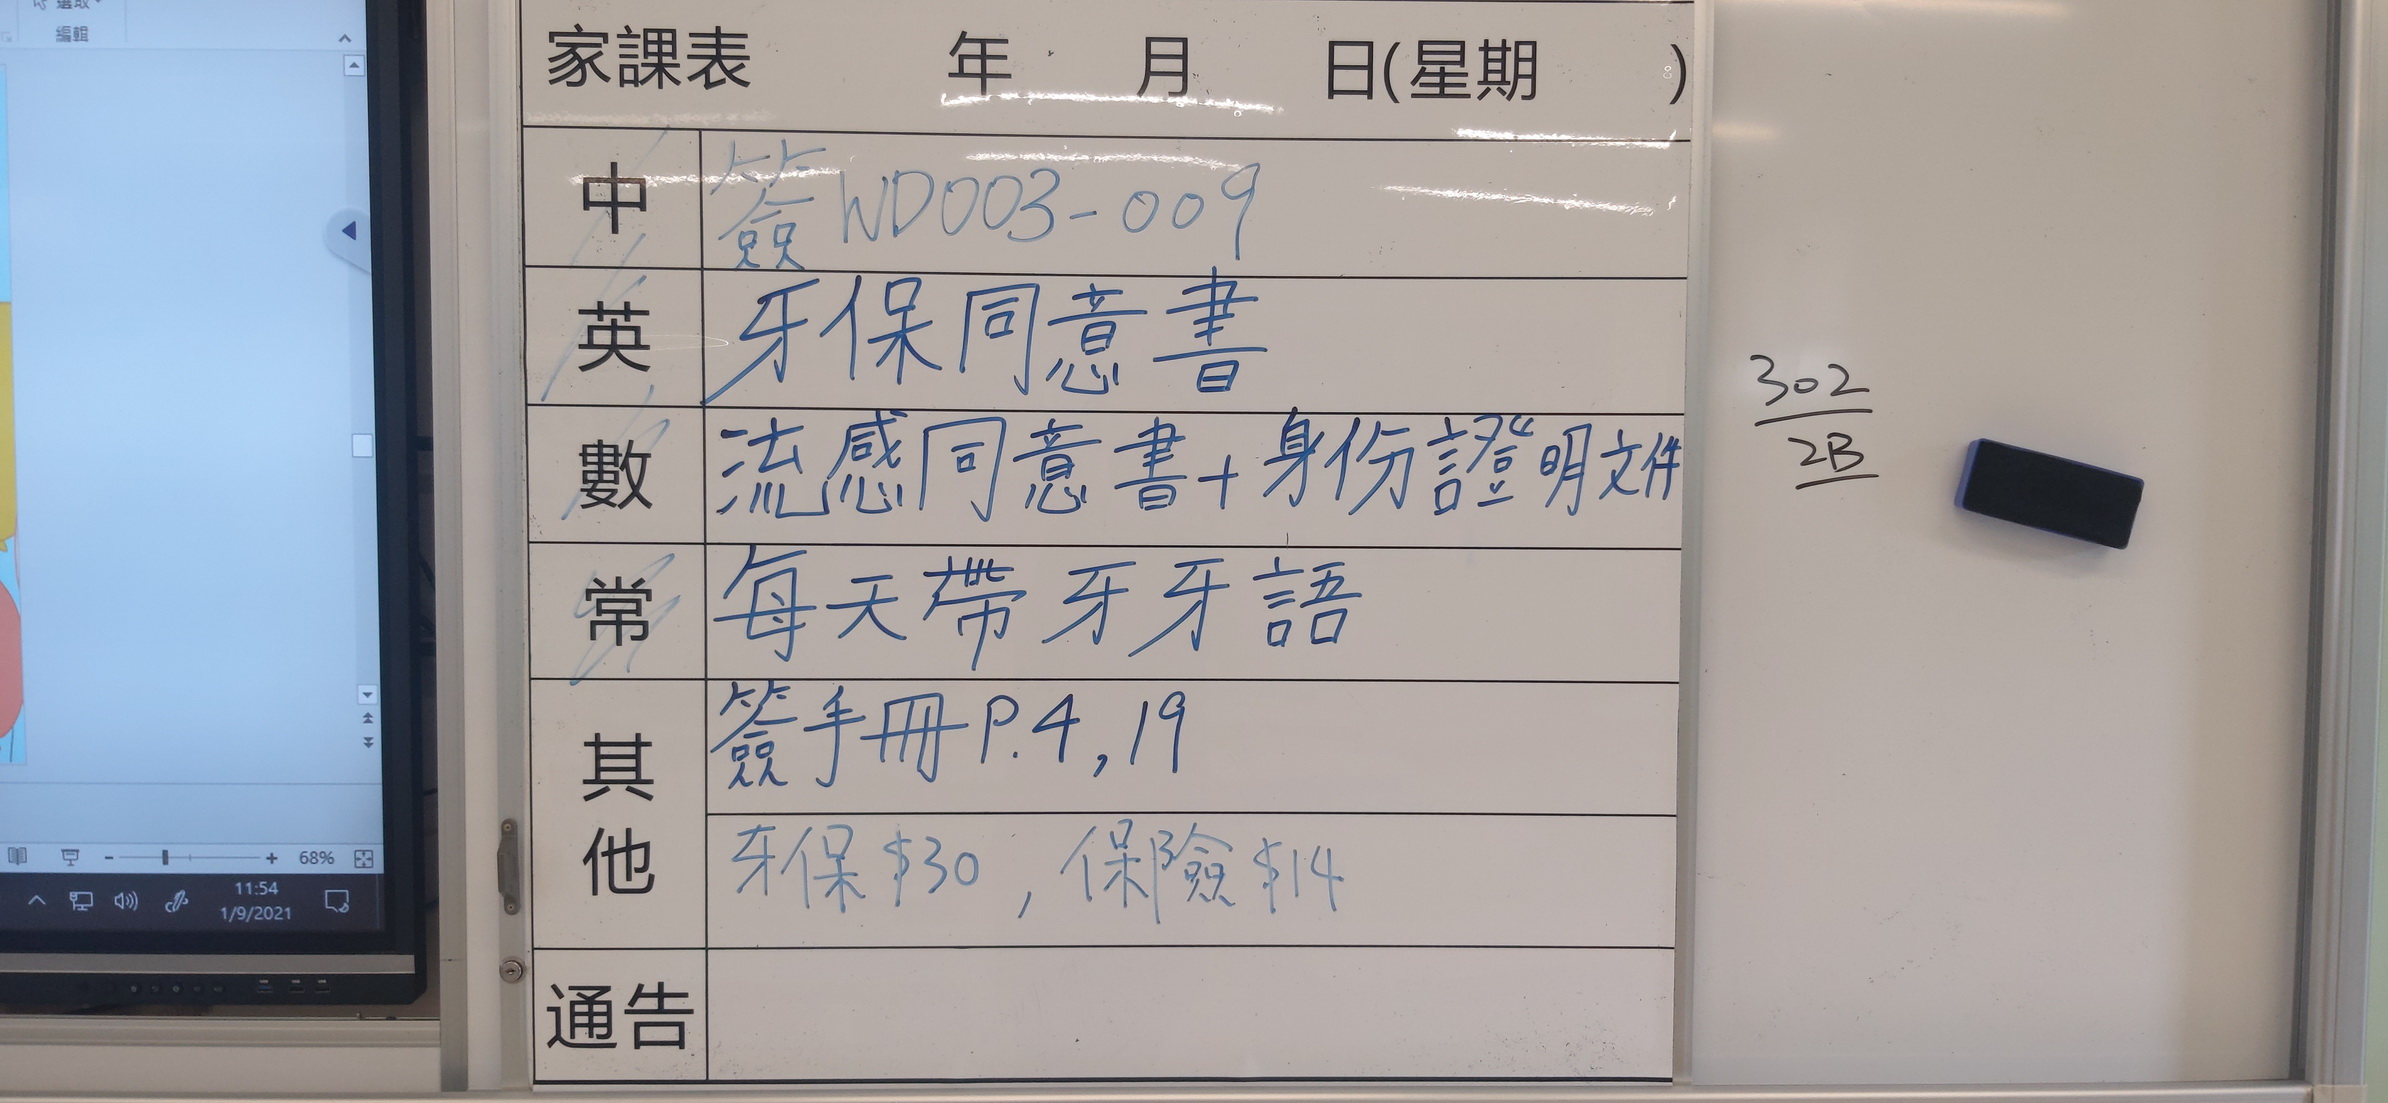 選取
編輯
家課表 年 月 日(星期 )
中 簽WD003-009
英 牙保同意書
數 流感同意書+身份證明文件
常 每天帶牙牙語
其他 簽手冊P.4,19
牙保$30,保險$14
通告
302
2B
68%
11:54
1/9/2021